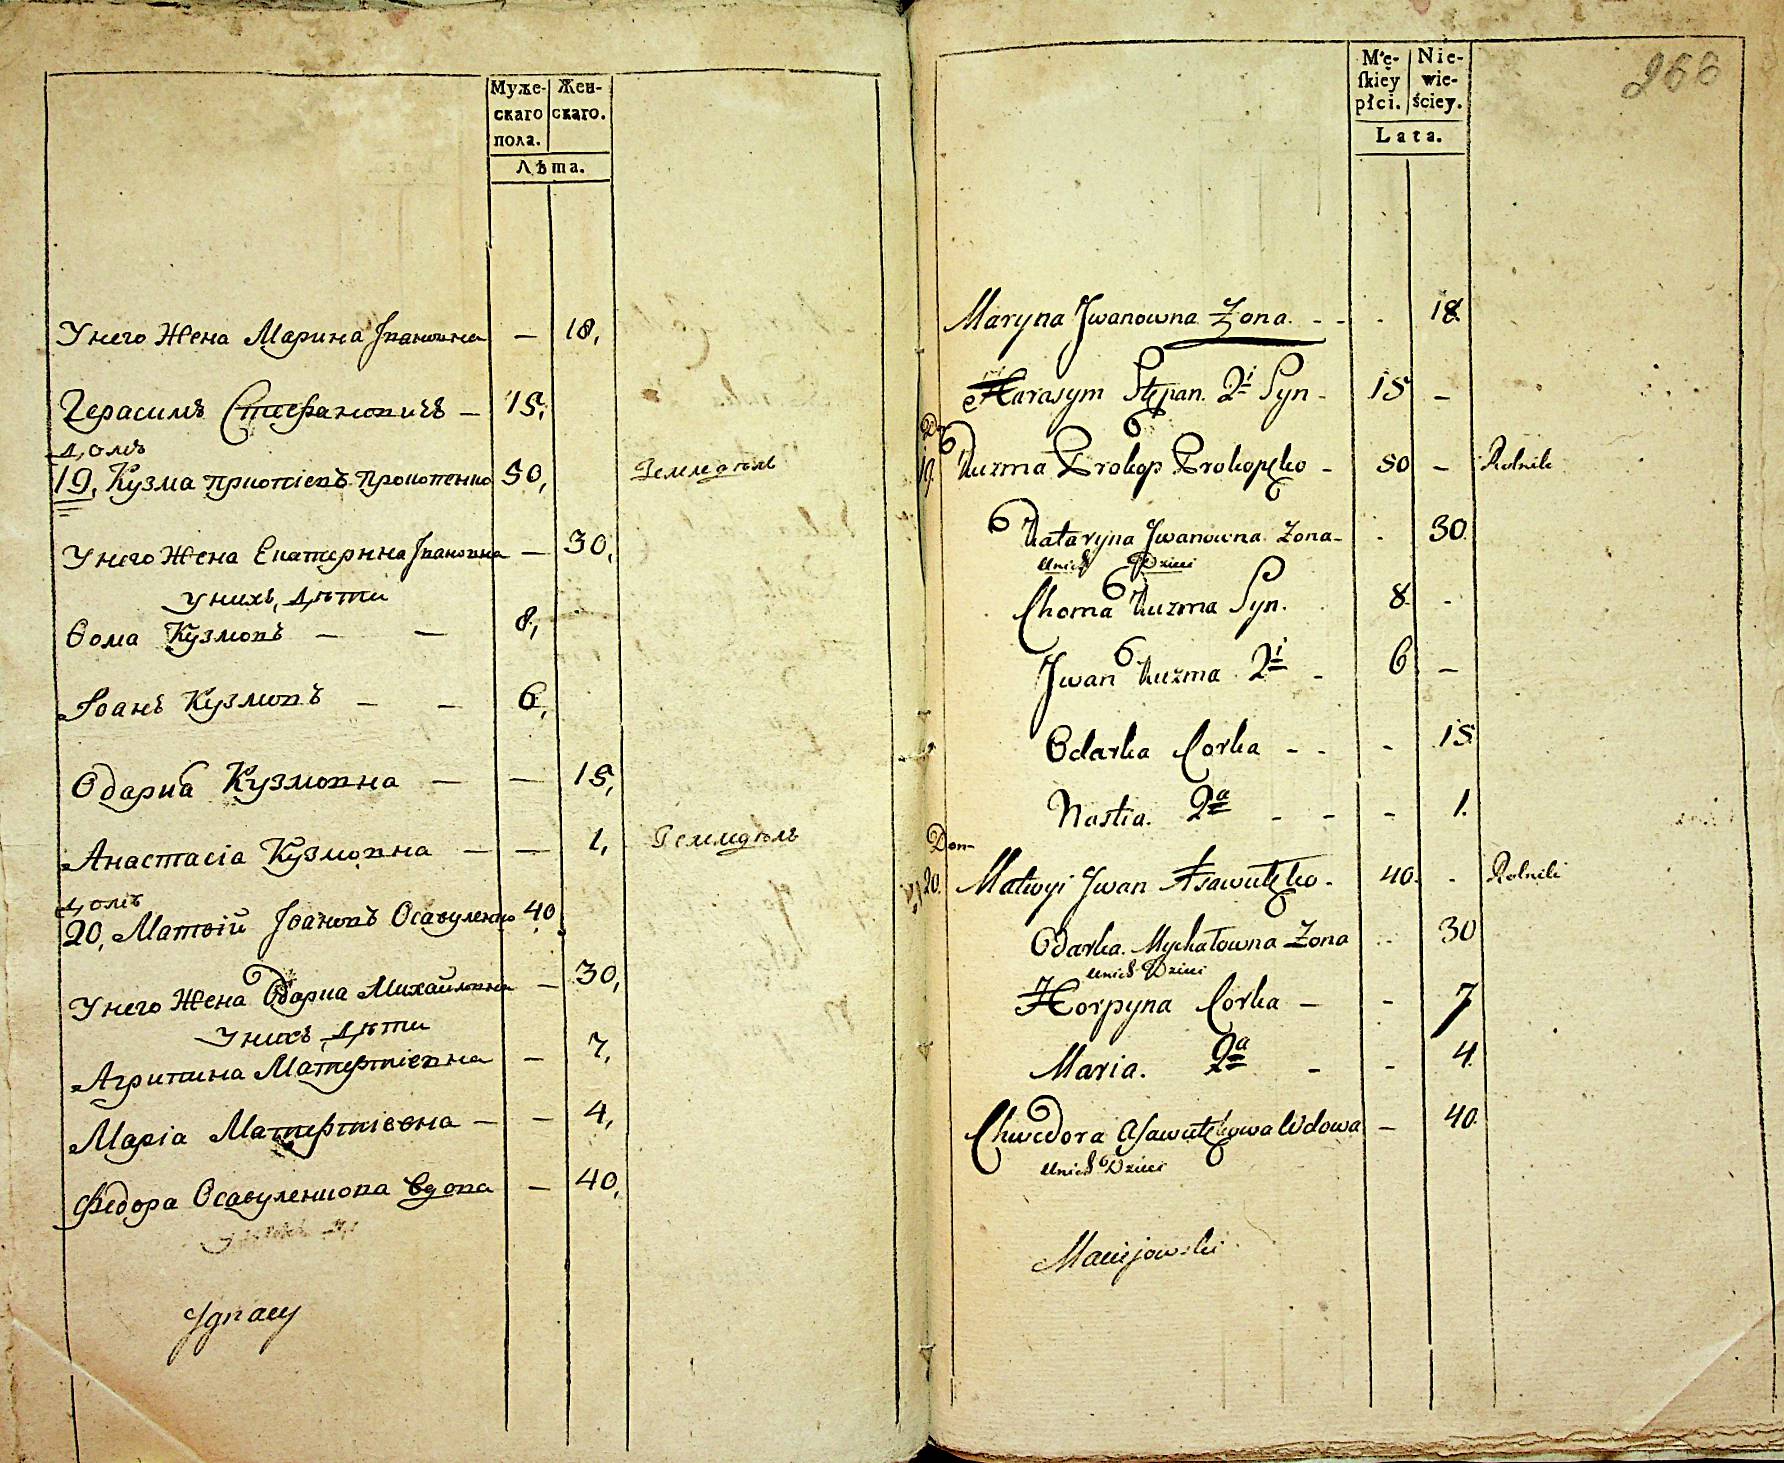 Муже-
скаго
пола.
Жен-
скаго.
Лѣта.
Унего Жена Марина Іванопна — 18,
Герасимъ Стефанопичъ — 15,
домъ
19, Кузма Прокопенко 50, Земледѣлъ
Унего Жена Екатерина Іванопна — 30,
Унихъ Дѣти
Ѳома Кузмопъ — — 8,
Іоанъ Кузмопъ — — 6,
Одарка Кузмопна — — 15,
Анастасіа Кузмопна — — 1, Земледѣлъ
домъ
20, Матвій Іванопъ Осавуленко 40
Унего Жена Одарка Михайлопна — 30,
Унихъ Дѣти
Агрипина Матфтіепна — 7,
Маріа Матфтіевна — — 4,
Федора Осавуленкопа вдопа — 40,
Ignacy
266
Mę-
skiey
płci.
Nie-
wie-
ściey.
Lata.
Maryna Jwanowna Żona. - - - 18.
Harasym Stepan. 2i Syn - 15 —
Dom
19. Kuzma Prokop Prokopęko - 50 — Rolnik
Kataryna Jwanowna Zona - . 30.
Unich Dzieci
Choma Kuzma Syn. 8. -
Jwan Kuzma 2i - 6 —
Odarka Corka - - - 15.
Nastia. 2a - - - 1.
Dom
20. Matwyi Jwan Asawulęko - 40. . Rolnik
Odarka. Mychałowna Zona .. 30
Unich Dzieci
Horpyna Corka — - 7
Maria. 2a - - 4.
Chwedora Asawulękowa Wdowa — 40.
Unich Dzieci
Maciejowski